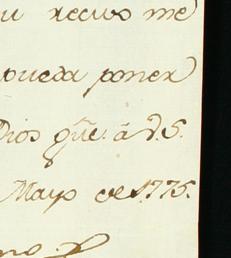 u recivo me
pueda poner
Dios gũe. á V.S.
Mayo de 1775.